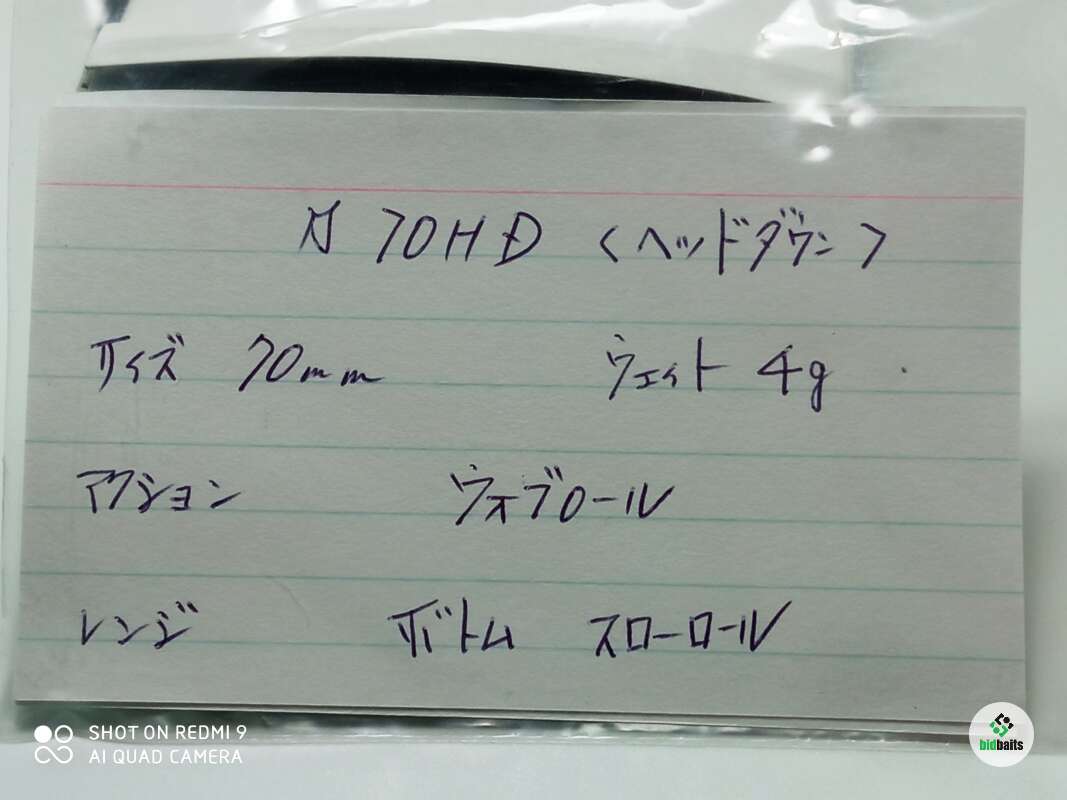 70HD <ヘッドダウン>
サイズ 70mm ウェイト 4g
アクション ウォブロール
レンジ ボトム スローロール
SHOT ON REDMI 9
AI QUAD CAMERA
bidbaits